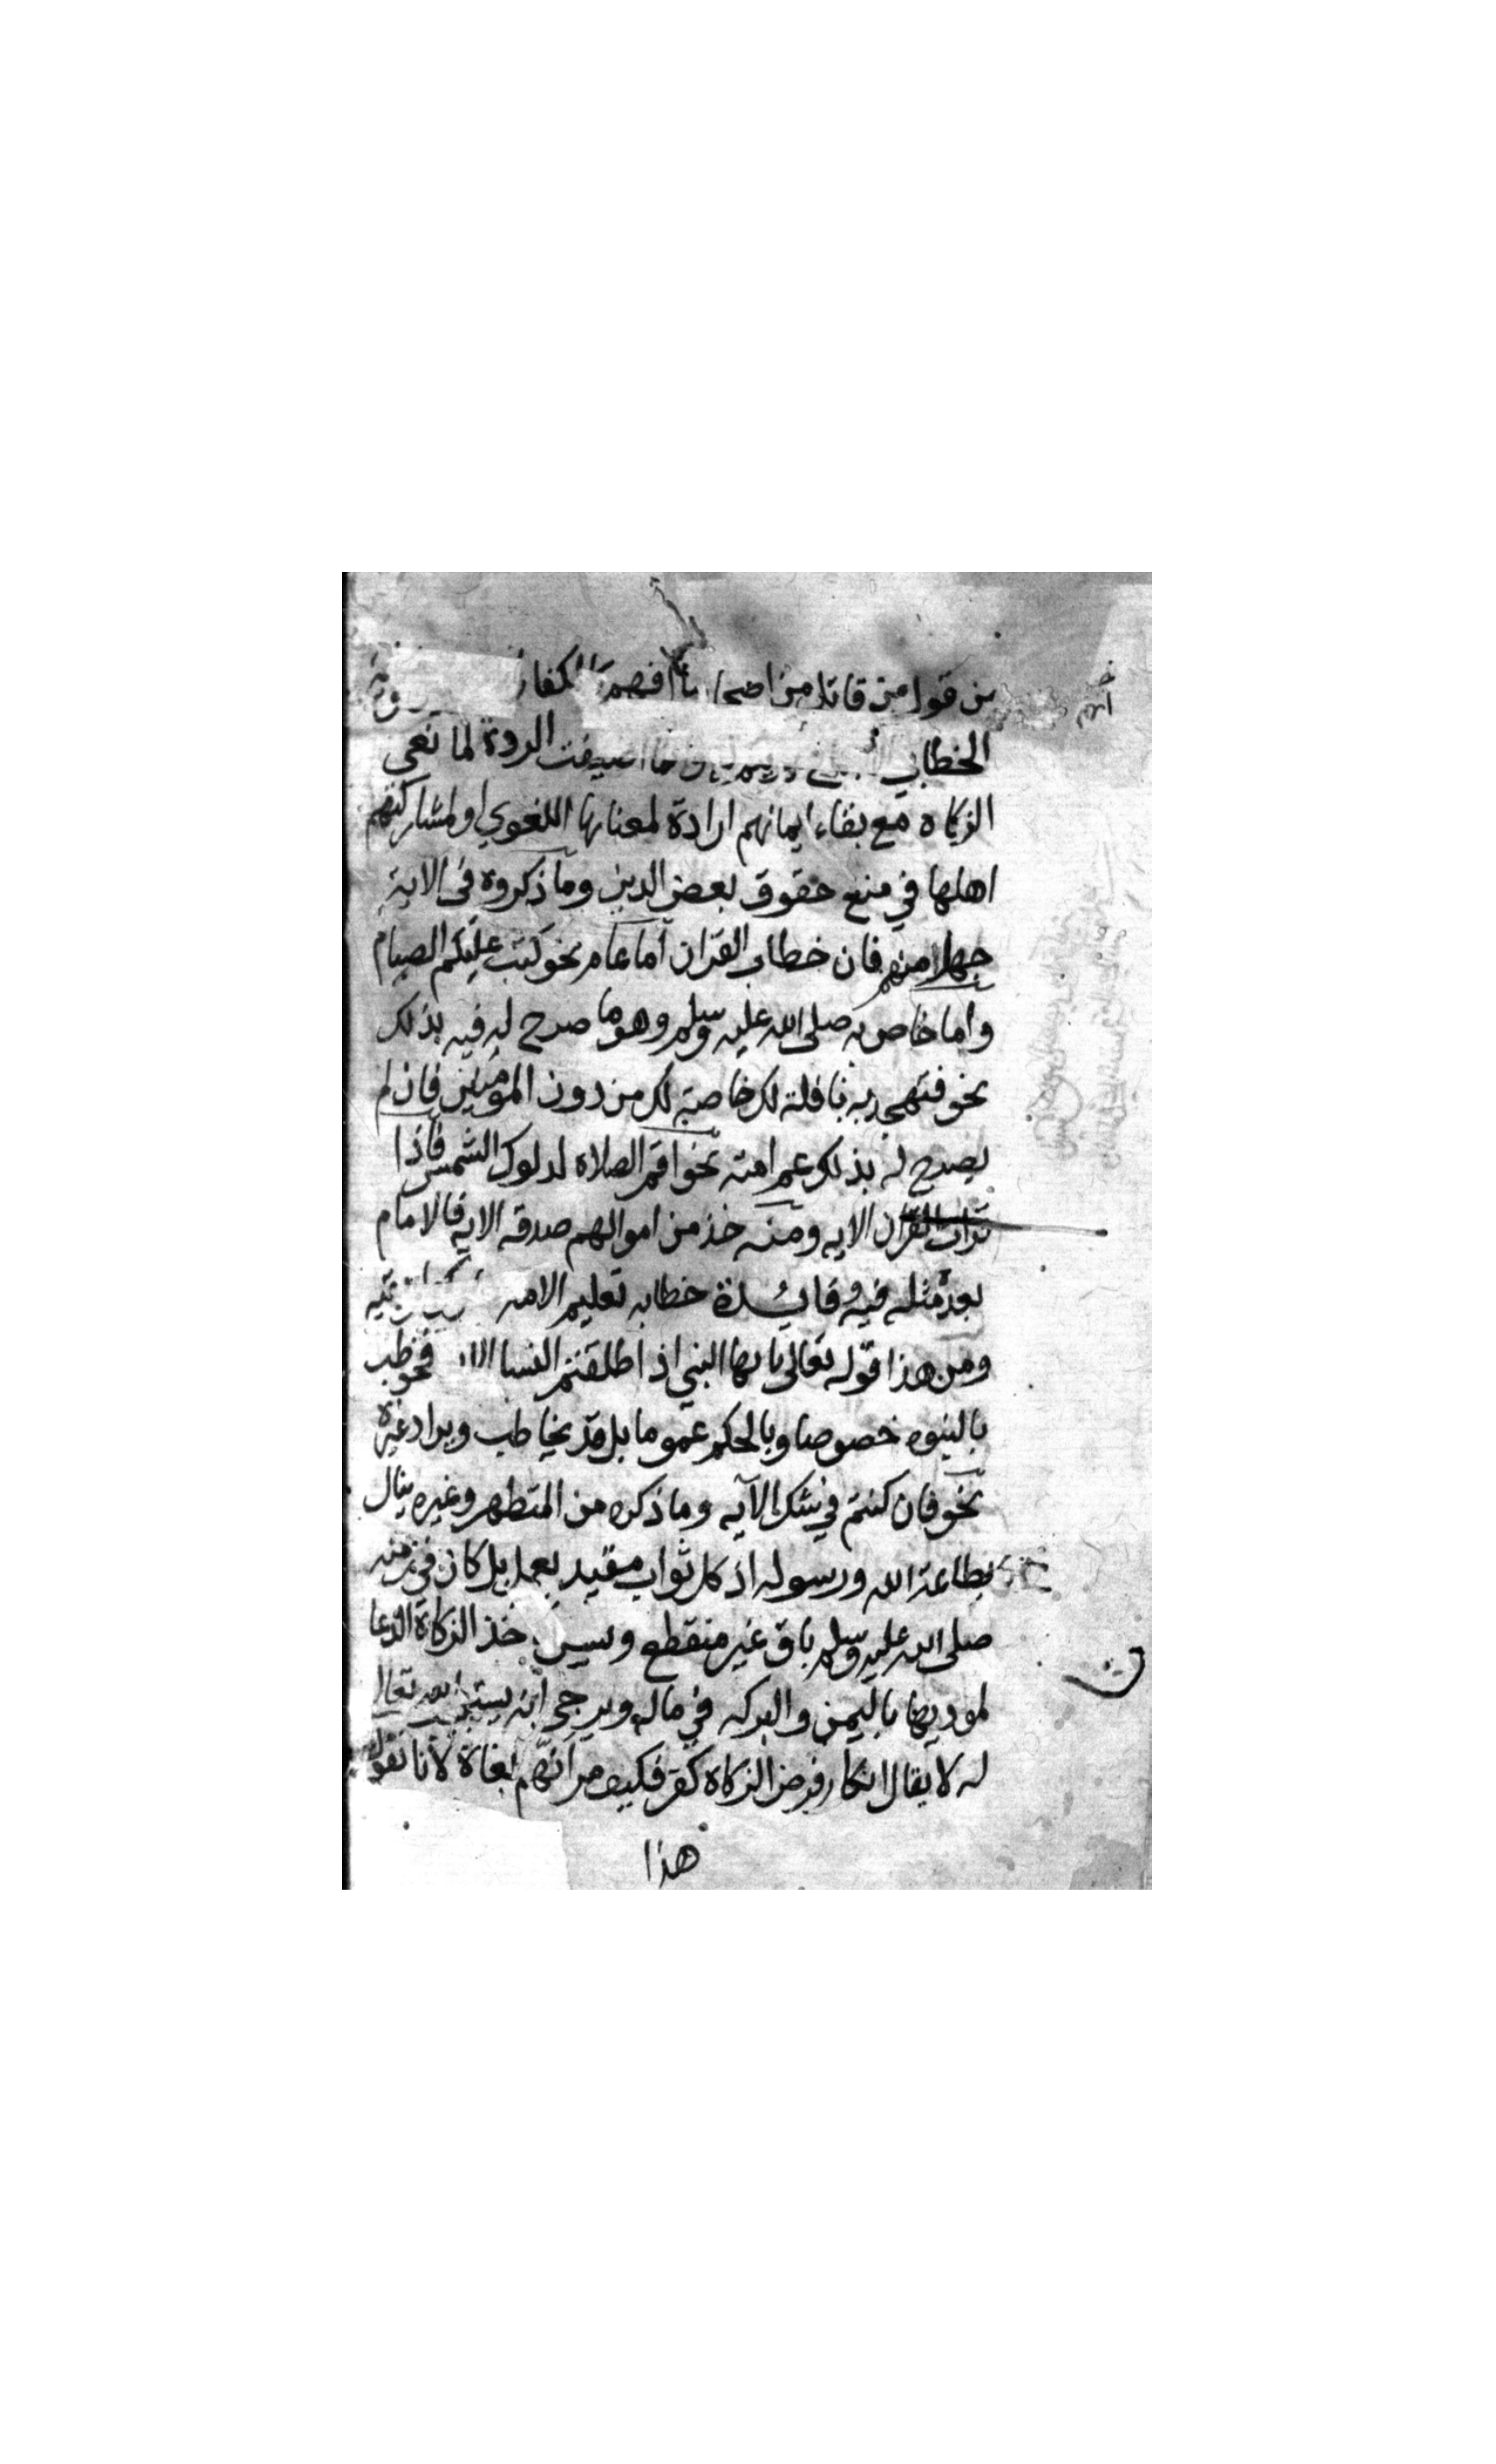 من قول من قاتل من اصحابنا فهم الكفار
الخطابي اضيفت الردة لمانعي
الزكاه مع بقاء ايمانهم ارادة لمعناها اللغوي او لمشاركتهم
اهلها في منع حقوق بعض الدين وما ذكروه في الاية
جهلا منهم فان خطاب القران اما عام نحو كتب عليكم الصيام
واما خاص به صلى الله عليه وسلم وهو ما صرح له فيه بذلك
نحو فتهجد به نافلة لك خاصة لك من دون المومنين فان لم
يصرح له بذلك عم امته نحو اقم الصلاة لدلوك الشمس فاذا
قرات القران الايه ومنه خذ من اموالهم صدقه الايه فالامام
بعده مثله فيه وفائدة خطابه تعليم الامه
ومن هذا قوله تعالى يا ايها النبي اذا طلقتم النسا فخوطب
بالنبوه خصوصا وبالحكم عموما بل قد يخاطب ويراد غيره
نحو فان كنتم في شك الآيه وما ذكره من المتطهر وغيره ينال
بطاعة الله ورسوله اذ كل ثواب مقيد بعمل كان في زمنه
صلى الله عليه وسلم باق غير منقطع ويسن خذ الزكاة الدعا
لموديها باليمن والبركه في ماله ويرجى انه يستجيب الله تعالى
له لا يقال انكار فرض الزكاه كفر فكيف مر انهم بغاة لانا نقول
هذا